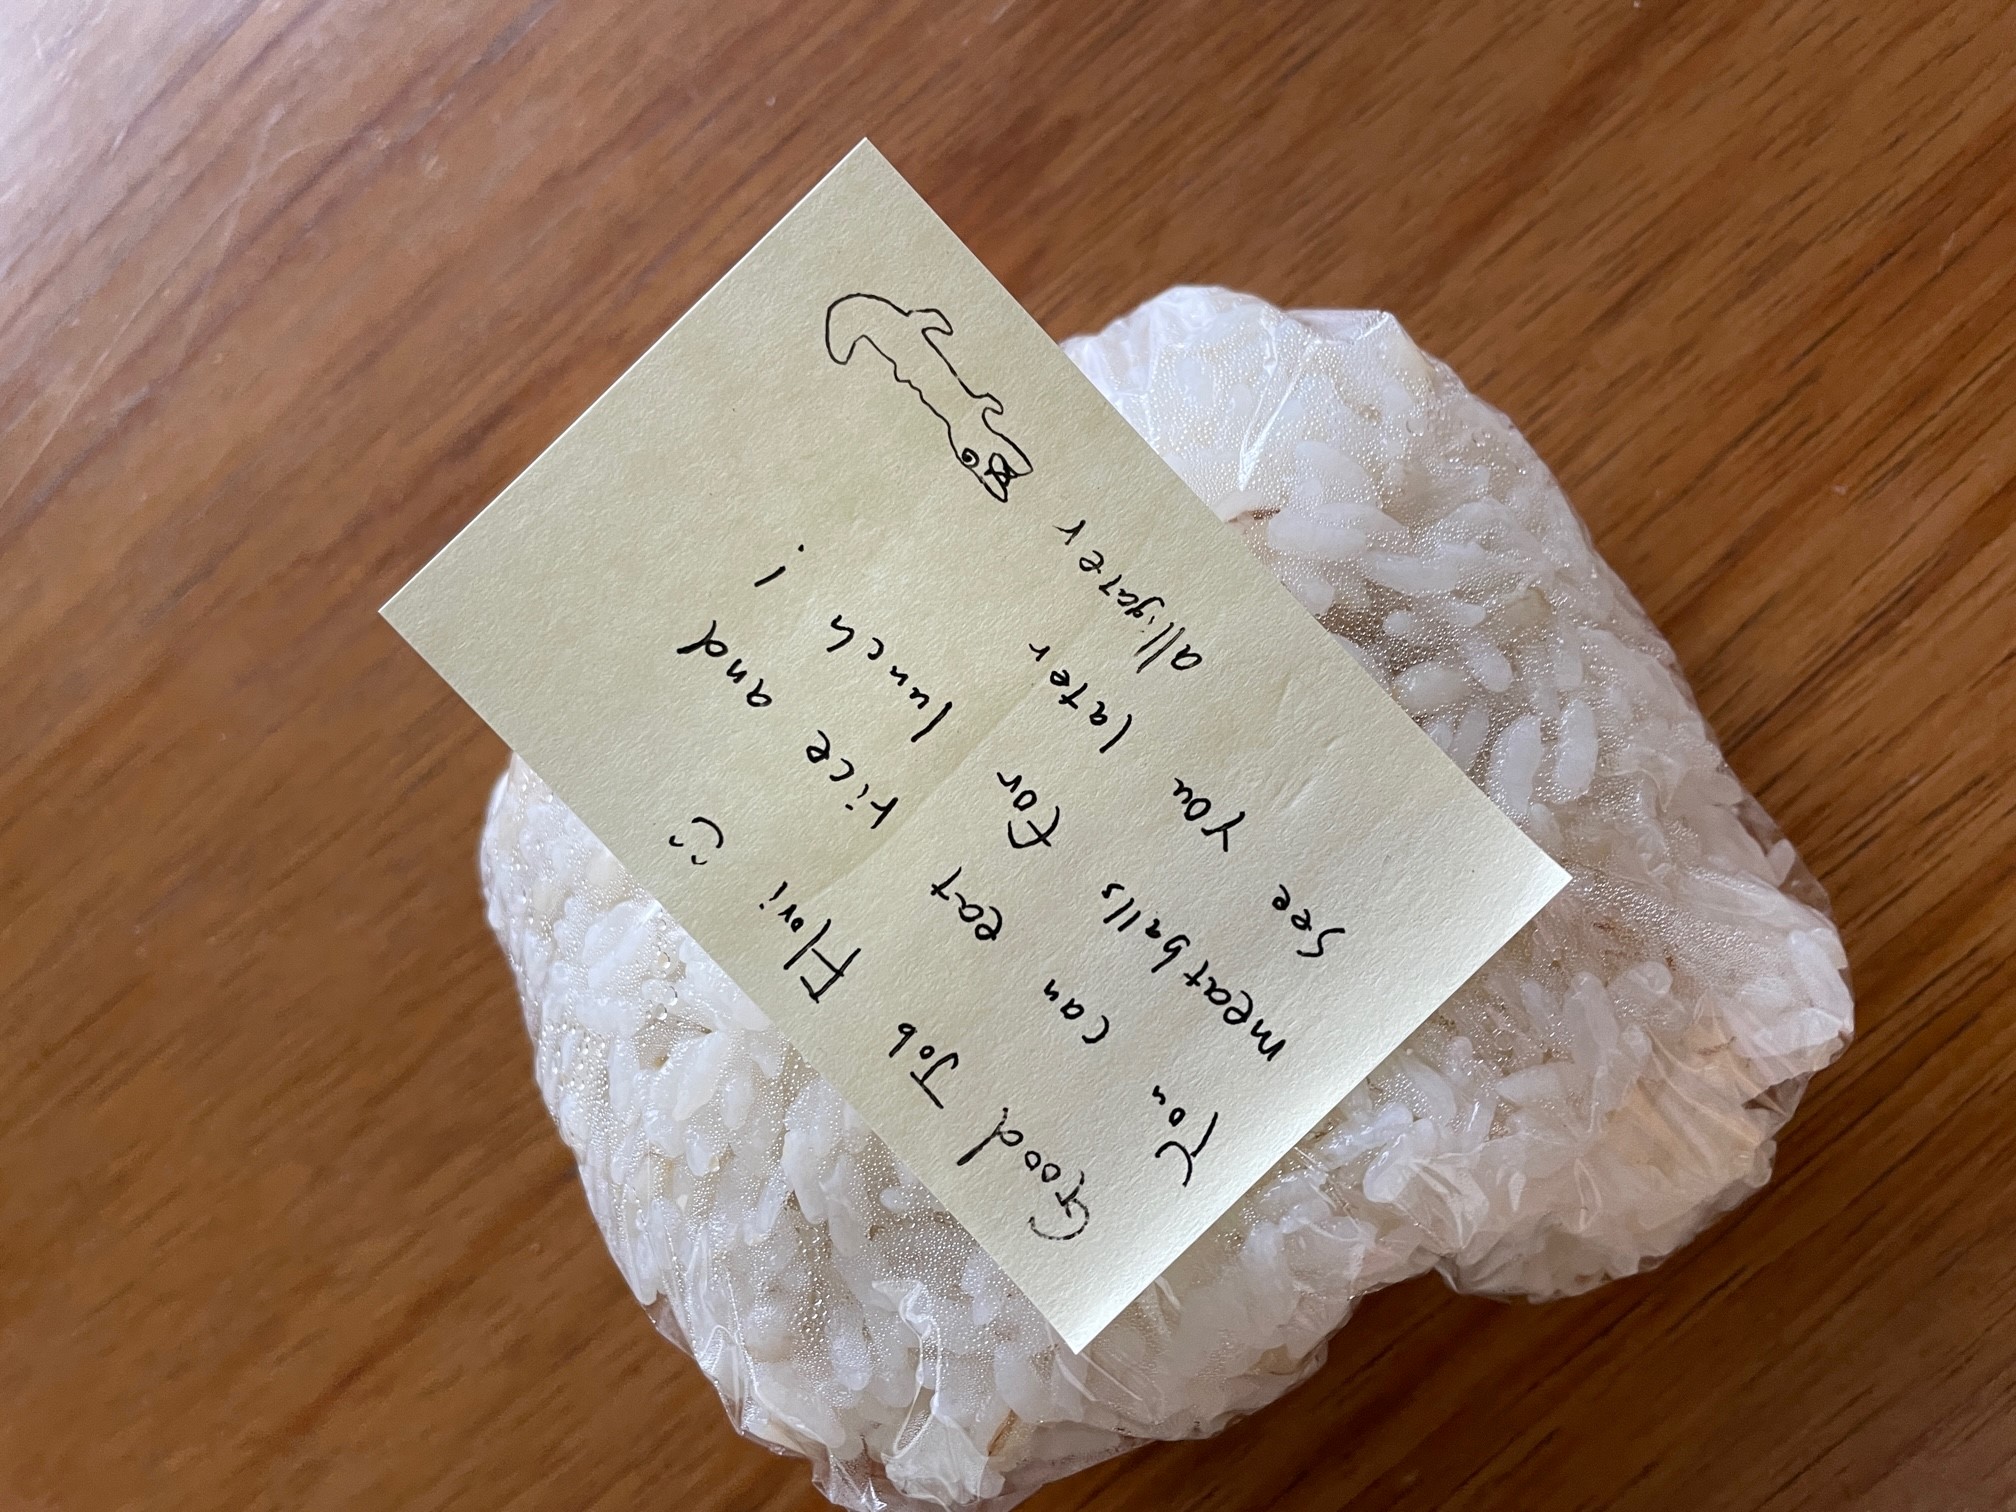 Good Job Flori :)
You can eat rice and
meatballs for lunch!
See you later
alligater